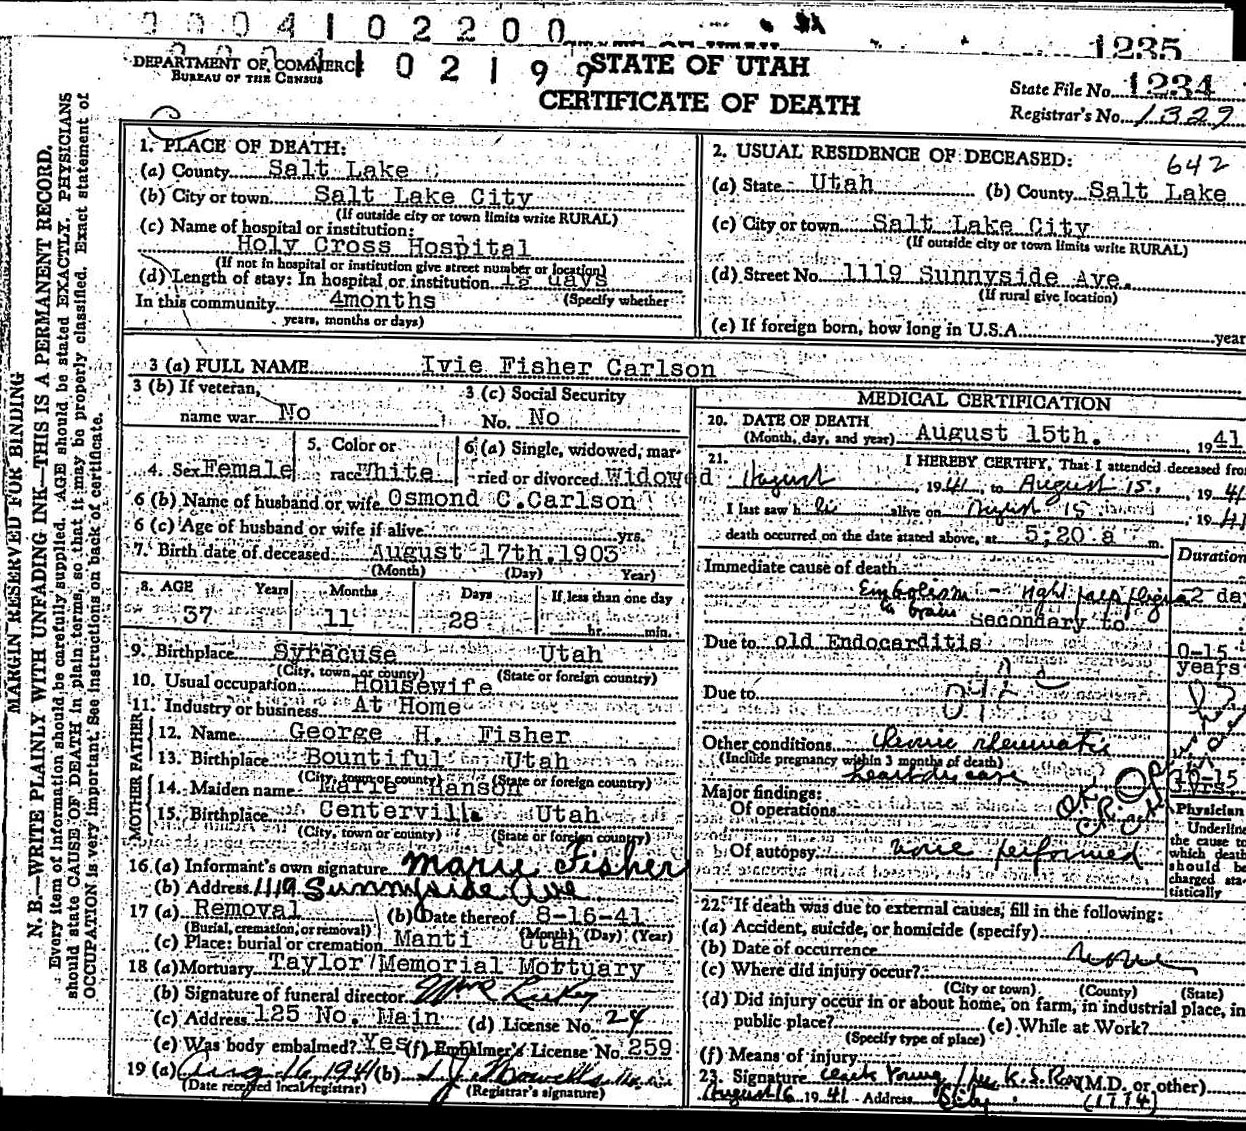 0004102200
1235
DEPARTMENT OF COMMERCE
BUREAU OF THE CENSUS
102199
STATE OF UTAH
CERTIFICATE OF DEATH
State File No. 1234
Registrar's No. 1329
MARGIN RESERVED FOR BINDING
N. B.—WRITE PLAINLY WITH UNFADING INK—THIS IS A PERMANENT RECORD.
Every item of information should be carefully supplied. AGE should be stated EXACTLY. PHYSICIANS
should state CAUSE OF DEATH in plain terms, so that it may be properly classified. Exact statement of
OCCUPATION is very important. See instructions on back of certificate.
1. PLACE OF DEATH:
(a) County Salt Lake
(b) City or town Salt Lake City
(If outside city or town limits write RURAL)
(c) Name of hospital or institution:
Holy Cross Hospital
(If not in hospital or institution give street number or location)
(d) Length of stay: In hospital or institution days
In this community 4months (Specify whether
years, months or days)
2. USUAL RESIDENCE OF DECEASED: 642
(a) State Utah (b) County Salt Lake
(c) City or town Salt Lake City
(If outside city or town limits write RURAL)
(d) Street No. 1119 Sunnyside Ave.
(If rural give location)
(e) If foreign born, how long in U.S.A. year
3 (a) FULL NAME Ivie Fisher Carlson
3 (b) If veteran,
name war No
3 (c) Social Security
No. No
4. Sex Female
5. Color or
race White
6 (a) Single, widowed, mar-
ried or divorced Widowed
6 (b) Name of husband or wife Osmond C.Carlson
6 (c) Age of husband or wife if alive yrs.
7. Birth date of deceased August 17th,1903
(Month) (Day) Year)
8. AGE Years Months Days If less than one day
37 11 28 hr. min.
9. Birthplace Syracuse Utah
(City, town, or county) (State or foreign country)
10. Usual occupation Housewife
11. Industry or business At Home
FATHER
12. Name George H. Fisher
13. Birthplace Bountiful Utah
(City, town or county) (State or foreign country)
MOTHER
14. Maiden name Marie Hanson
15. Birthplace Centerville Utah
(City, town or county) (State or foreign country)
16 (a) Informant's own signature Marie Fisher
(b) Address 1119 Sunnyside Ave
17 (a) Removal (b) Date thereof 8-16-41
(Burial, cremation, or removal) (Month) (Day) (Year)
(c) Place: burial or cremation Manti Utah
18 (a) Mortuary Taylor Memorial Mortuary
(b) Signature of funeral director
(c) Address 125 No. Main (d) License No. 24
(e) Was body embalmed? Yes (f) Embalmer's License No. 259
19 (a) Aug 16 1941 (b)
(Date received local registrar) (Registrar's signature)
MEDICAL CERTIFICATION
20. DATE OF DEATH
(Month, day, and year) August 15th. 1941
21. I HEREBY CERTIFY, That I attended deceased from
August, 1941, to August 15, 1941
I last saw h alive on August 15 1941
death occurred on the date stated above, at 5:20 a m.
Duration
Immediate cause of death
Embolism - right
to brain
2 da
Secondary to
Due to old Endocarditis 10-15
years
Due to
Other conditions chronic rheumatic
(Include pregnancy within 3 months of death)
heart disease 10-15
yrs
Major findings:
Of operations
Of autopsy none performed
OK
Physician
Underline
the cause to
which death
should be
charged sta-
tistically
22. If death was due to external causes, fill in the following:
(a) Accident, suicide, or homicide (specify)
(b) Date of occurrence none
(c) Where did injury occur?
(City or town) (County) (State)
(d) Did injury occur in or about home, on farm, in industrial place, in
public place? (e) While at Work?
(Specify type of place)
(f) Means of injury
23. Signature Clark Young (M.D. or other)
August 16 1941 Address City (1774)